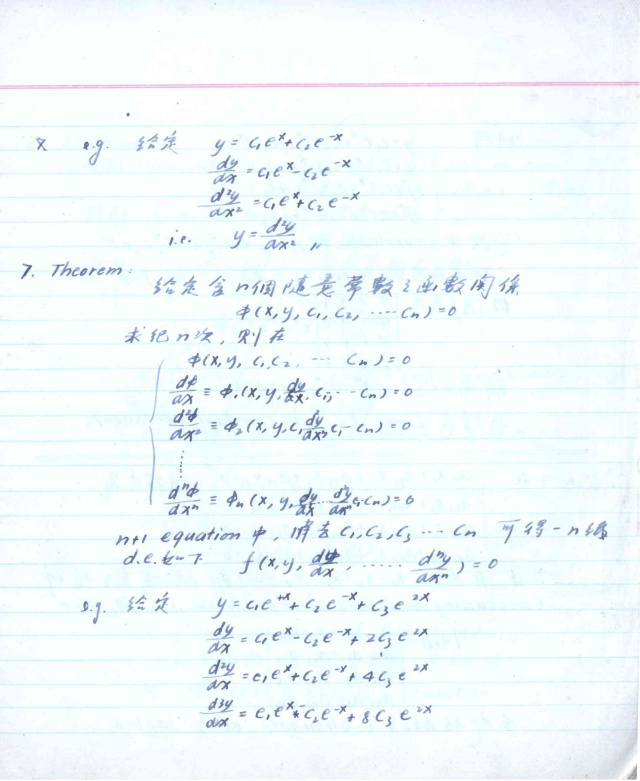 8 e.g. 給定 y = c₁eˣ + c₂e⁻ˣ
dy/dx = c₁eˣ - c₂e⁻ˣ
d²y/dx² = c₁eˣ + c₂e⁻ˣ
i.e. y = d²y/dx² 〃
7. Theorem:
給定含n個隨意常數之函數関係
φ(x, y, c₁, c₂, ---- cₙ) = 0
求紀n次, 則在
φ(x, y, c₁, c₂, --- cₙ) = 0
dφ/dx ≡ φ₁(x, y, dy/dx, c₁, --- cₙ) = 0
d²φ/dx² ≡ φ₂(x, y, c₁ dy/dx, c₁ - cₙ) = 0
⋮
dⁿφ/dxⁿ ≡ φₙ(x, y, dy/dx ... dⁿy/dxⁿ c₁ cₙ) = 0
n+1 equation 中, 消去 c₁, c₂, c₃ --- cₙ 可得一n階
d.e. 如下 f(x, y, dy/dx, ...... dⁿy/dxⁿ) = 0
e.g. 給定 y = c₁e⁺ˣ + c₂e⁻ˣ + c₃e²ˣ
dy/dx = c₁eˣ - c₂e⁻ˣ + 2c₃e²ˣ
d²y/dx = c₁eˣ + c₂e⁻ˣ + 4c₃e²ˣ
d3y/dx = c₁eˣ - c₂e⁻ˣ + 8c₃e²ˣ